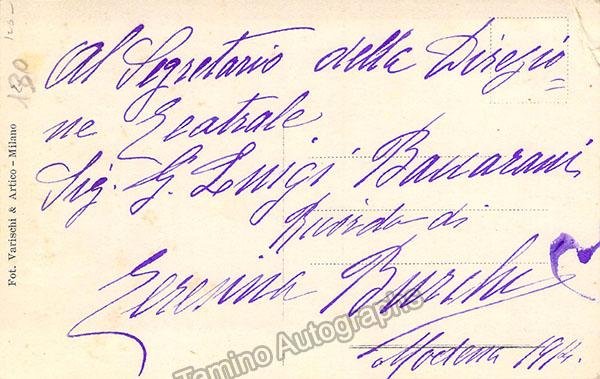 Al Segretario della Direzio=
ne Teatrale
Sig. G. Luigi Baccarani
Ricordo di
Teresina Burchi
Modena 1914.
Fot. Varischi & Artico - Milano
130
Tamino Autographs